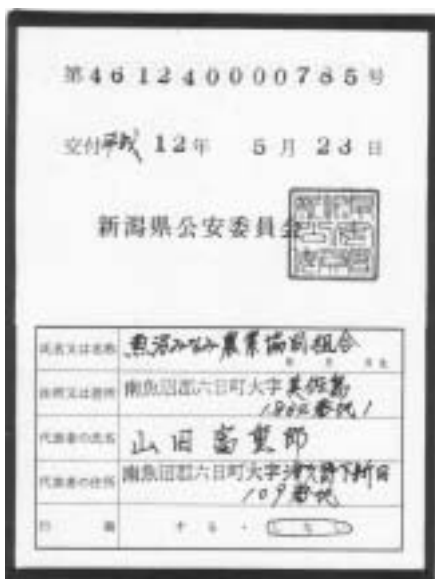 第461240000785号
交付平成12年 5月23日
新潟県公安委員会
氏名又は名称 魚沼みなみ農業協同組合
年 月 日生
住所又は居所 南魚沼郡六日町大字美佐島
1802番地1
代表者の氏名 山田富
代表者の住所 南魚沼郡六日町大字
109番地
行 商 する・しない